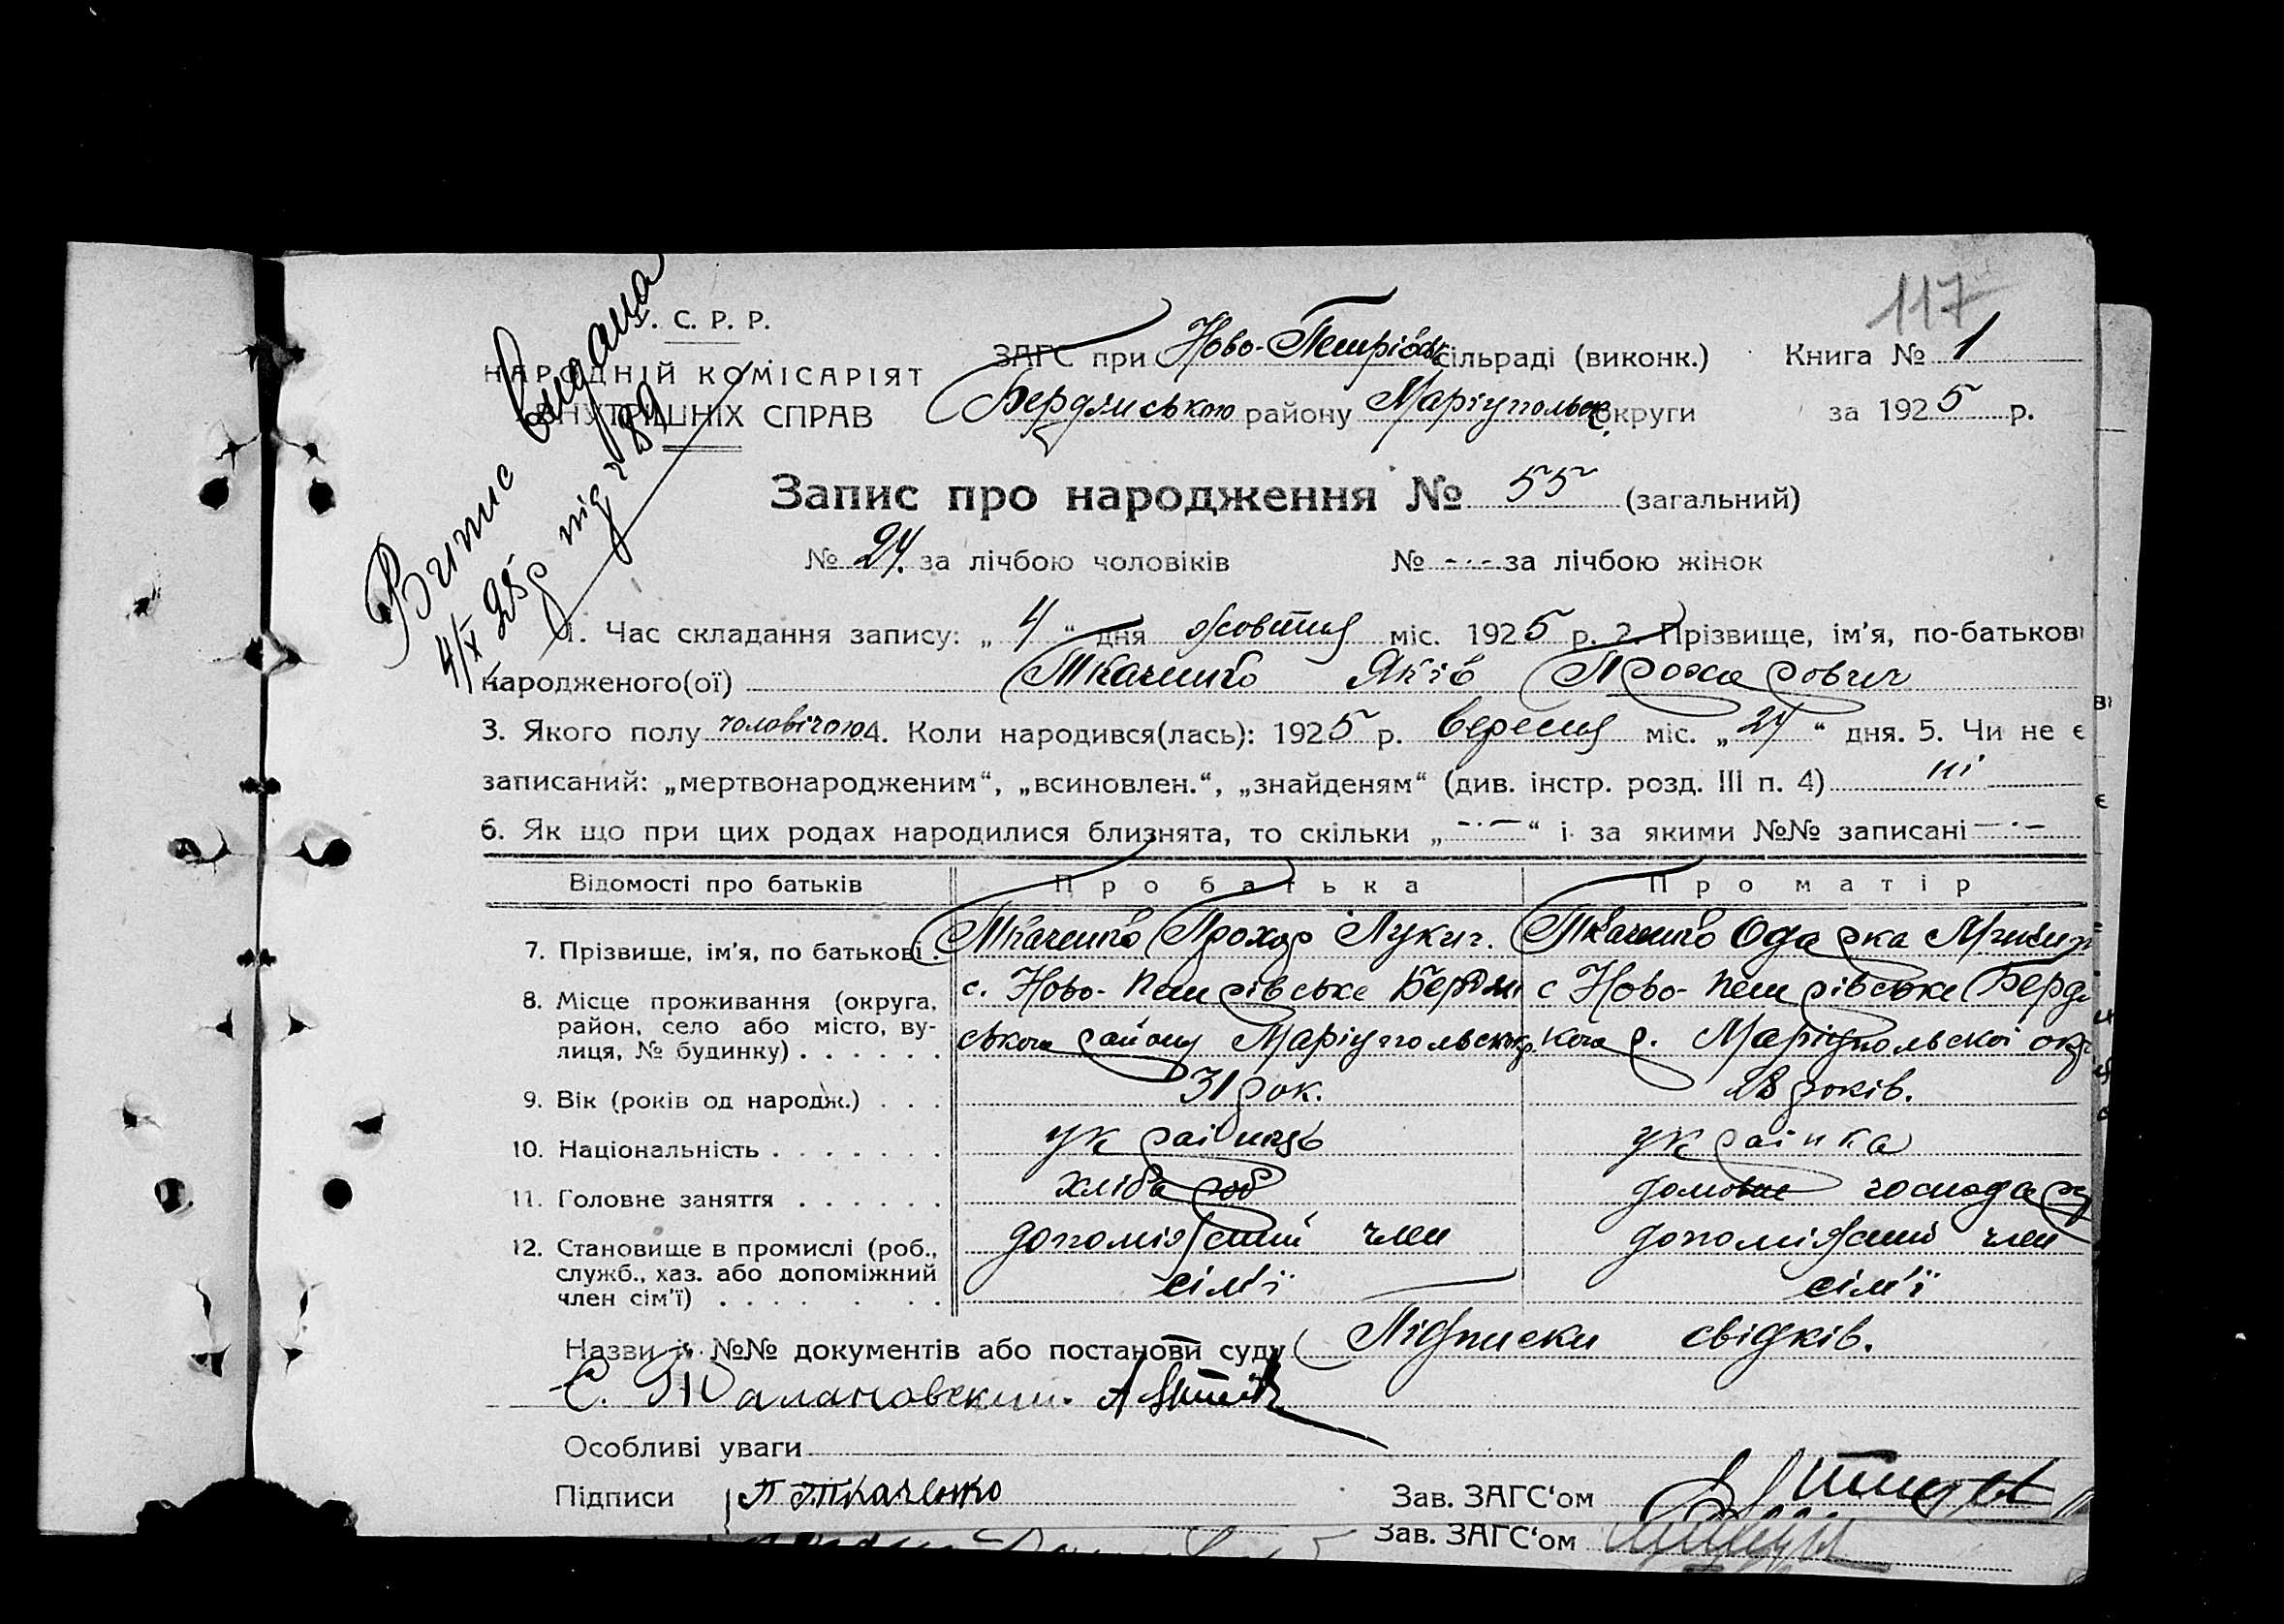 117
У. С. Р. Р.
НАРОДНІЙ КОМІСАРІЯТ
ВНУТРІШНІХ СПРАВ
Витис видана
4/X 25р під № 89
ЗАГС при Ново-Петрівськ сільраді (виконк.) Книга № 1
Бердянською району Маріупольск. округи за 1925 р.
Запис про народження № 55 (загальний)
№ 24. за лічбою чоловіків № -·- за лічбою жінок
1. Час складання запису: „ 4 “ дня жовтня міс. 1925 р. 2. Прізвище, ім'я, по-батькові
народженого(ої) Ткаченко Яків Прохорович
3. Якого полу чоловічого 4. Коли народився(лась): 1925 р. вересня міс. „ 24 “ дня. 5. Чи не є
записаний: „мертвонародженим“, „всиновлен.“, „знайденям“ (див. інстр. розд. III п. 4) ні
6. Як що при цих родах народилися близнята, то скільки „ -·- “ і за якими №№ записані -·-
Відомості про батьків Про батька Про матір
7. Прізвище, ім'я, по батькові. Ткаченко Прохор Лукич. Ткаченко Одарка
8. Місце проживання (округа, район, село або місто, вулиця, № будинку) с. Ново-Петрівське Бердян с Ново-Петрівське Бердя
ського району Маріупольськ. кого р. Маріупольскої окр
9. Вік (років од народж.) 31 рок. 18 років.
10. Національність українець українка
11. Головне заняття хлібороб домове господар
12. Становище в промислі (роб., служб., хаз. або допоміжний член сім'ї) допоміжний член допоміжний член
сім'ї сім'ї
Назви і №№ документів або постанови суду Підписки свідків.
Особливі уваги
Підписи П Ткаченко Зав. ЗАГС'ом
Зав. ЗАГС'ом